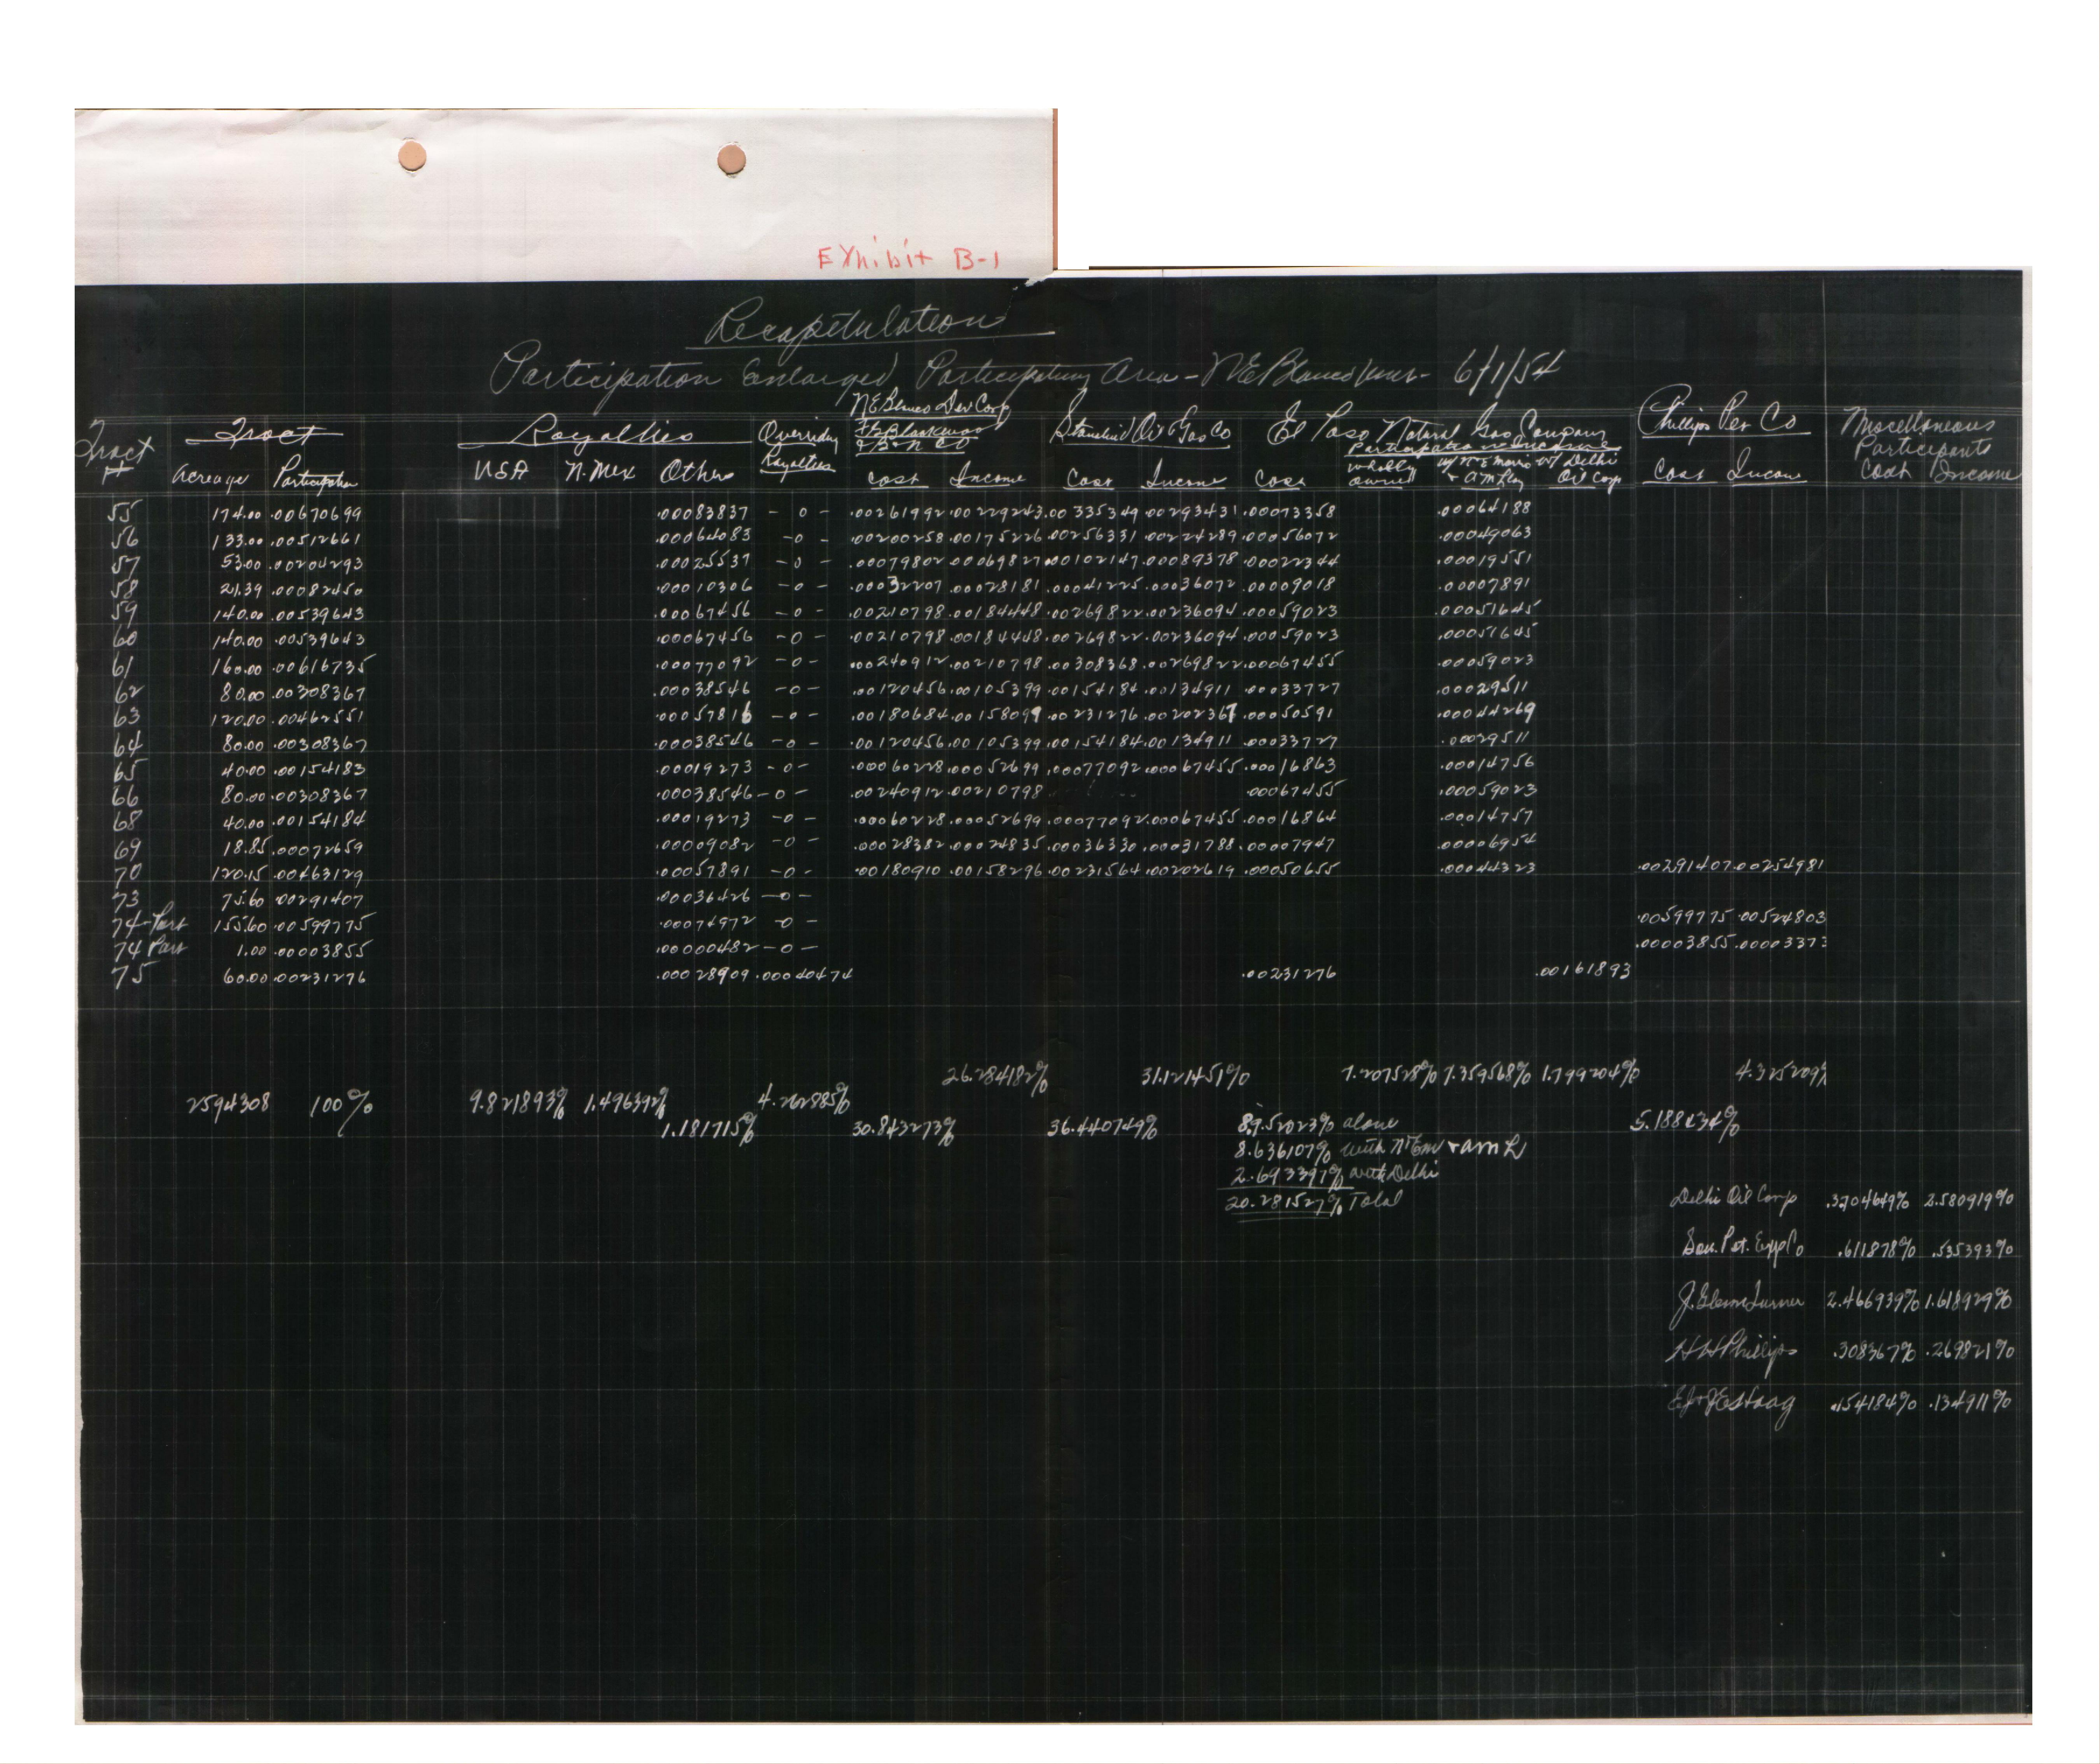 Exhibit B-1
Recapitulation
Participation Enlarged Participating Area - N E Blanco Unit - 6/1/54
Tract # Tract Royalties Overriding Royalties N E Blanco Dev Corp Stanolind Oil & Gas Co El Paso Natural Gas Company Phillips Pet Co Miscellaneous Participants
& B & N CO Participation in Income
Acreage Participation USA N. Mex Others Cost Income Cost Income Cost Wholly owned w/ Delhi Oil Corp Cost Income Cost Income
55 174.00 .00670699 .00083837 - 0 - .00261992 .00229243 .00335349 .00293431 .00073358 .00064188
56 133.00 .00512661 .00064083 - 0 - .00200258 .00175226 .00256331 .00224289 .00056072 .00049063
57 53.00 .00204293 .00025537 - 0 - .00079802 .00069827 .00102147 .00089378 .00022344 .00019551
58 21.39 .00082450 .00010306 - 0 - .00032207 .00028181 .00041225 .00036072 .00009018 .00007891
59 140.00 .00539643 .00067456 - 0 - .00210798 .00184448 .00269822 .00236094 .00059023 .00051645
60 140.00 .00539643 .00067456 - 0 - .00210798 .00184448 .00269822 .00236094 .00059023 .00051645
61 160.00 .00616735 .00077092 - 0 - .00240912 .00210798 .00308368 .00269822 .00067455 .00059023
62 80.00 .00308367 .00038546 - 0 - .00120456 .00105399 .00154184 .00134911 .00033727 .00029511
63 120.00 .00462551 .00057816 - 0 - .00180684 .00158099 .00231276 .00202367 .00050591 .00044269
64 80.00 .00308367 .00038546 - 0 - .00120456 .00105399 .00154184 .00134911 .00033727 .00029511
65 40.00 .00154183 .00019273 - 0 - .00060228 .00052699 .00077092 .00067455 .00016863 .00014756
66 80.00 .00308367 .00038546 - 0 - .00240912 .00210798 .00067455 .00059023
68 40.00 .00154184 .00019273 - 0 - .00060228 .00052699 .00077092 .00067455 .00016864 .00014757
69 18.85 .00072659 .00009082 - 0 - .00028382 .00024835 .00036330 .00031788 .00007947 .00006954
70 120.15 .00463129 .00057891 - 0 - .00180910 .00158296 .00231564 .00202619 .00050655 .00044323 .00291407 .00254981
73 75.60 .00291407 .00036426 - 0 -
74-Part 155.60 .00599775 .00074972 - 0 - .00599775 .00524803
74 Part 1.00 .00003855 .00000482 - 0 - .00003855 .00003373
75 60.00 .00231276 .00028909 .00040474 .00231276 .00161893
26.284182% 31.121451% 7.207528% 7.359568% 1.799204% 4.325209%
2594308 100% 9.821893% 1.496392% 4.262885%
1.181715% 30.843273% 36.440749% 89.52023% alone 5.188434%
8.636107% with N E M & AM L
2.693397% with Delhi
20.281527% Total
Delhi Oil Corp .3704649% 2.580919%
Sou. Pet. Expl Co .611878% .535393%
J. Glenn Turner 2.466939% 1.618929%
H H Phillips .308367% .269821%
E J & J E Haag .154184% .134911%